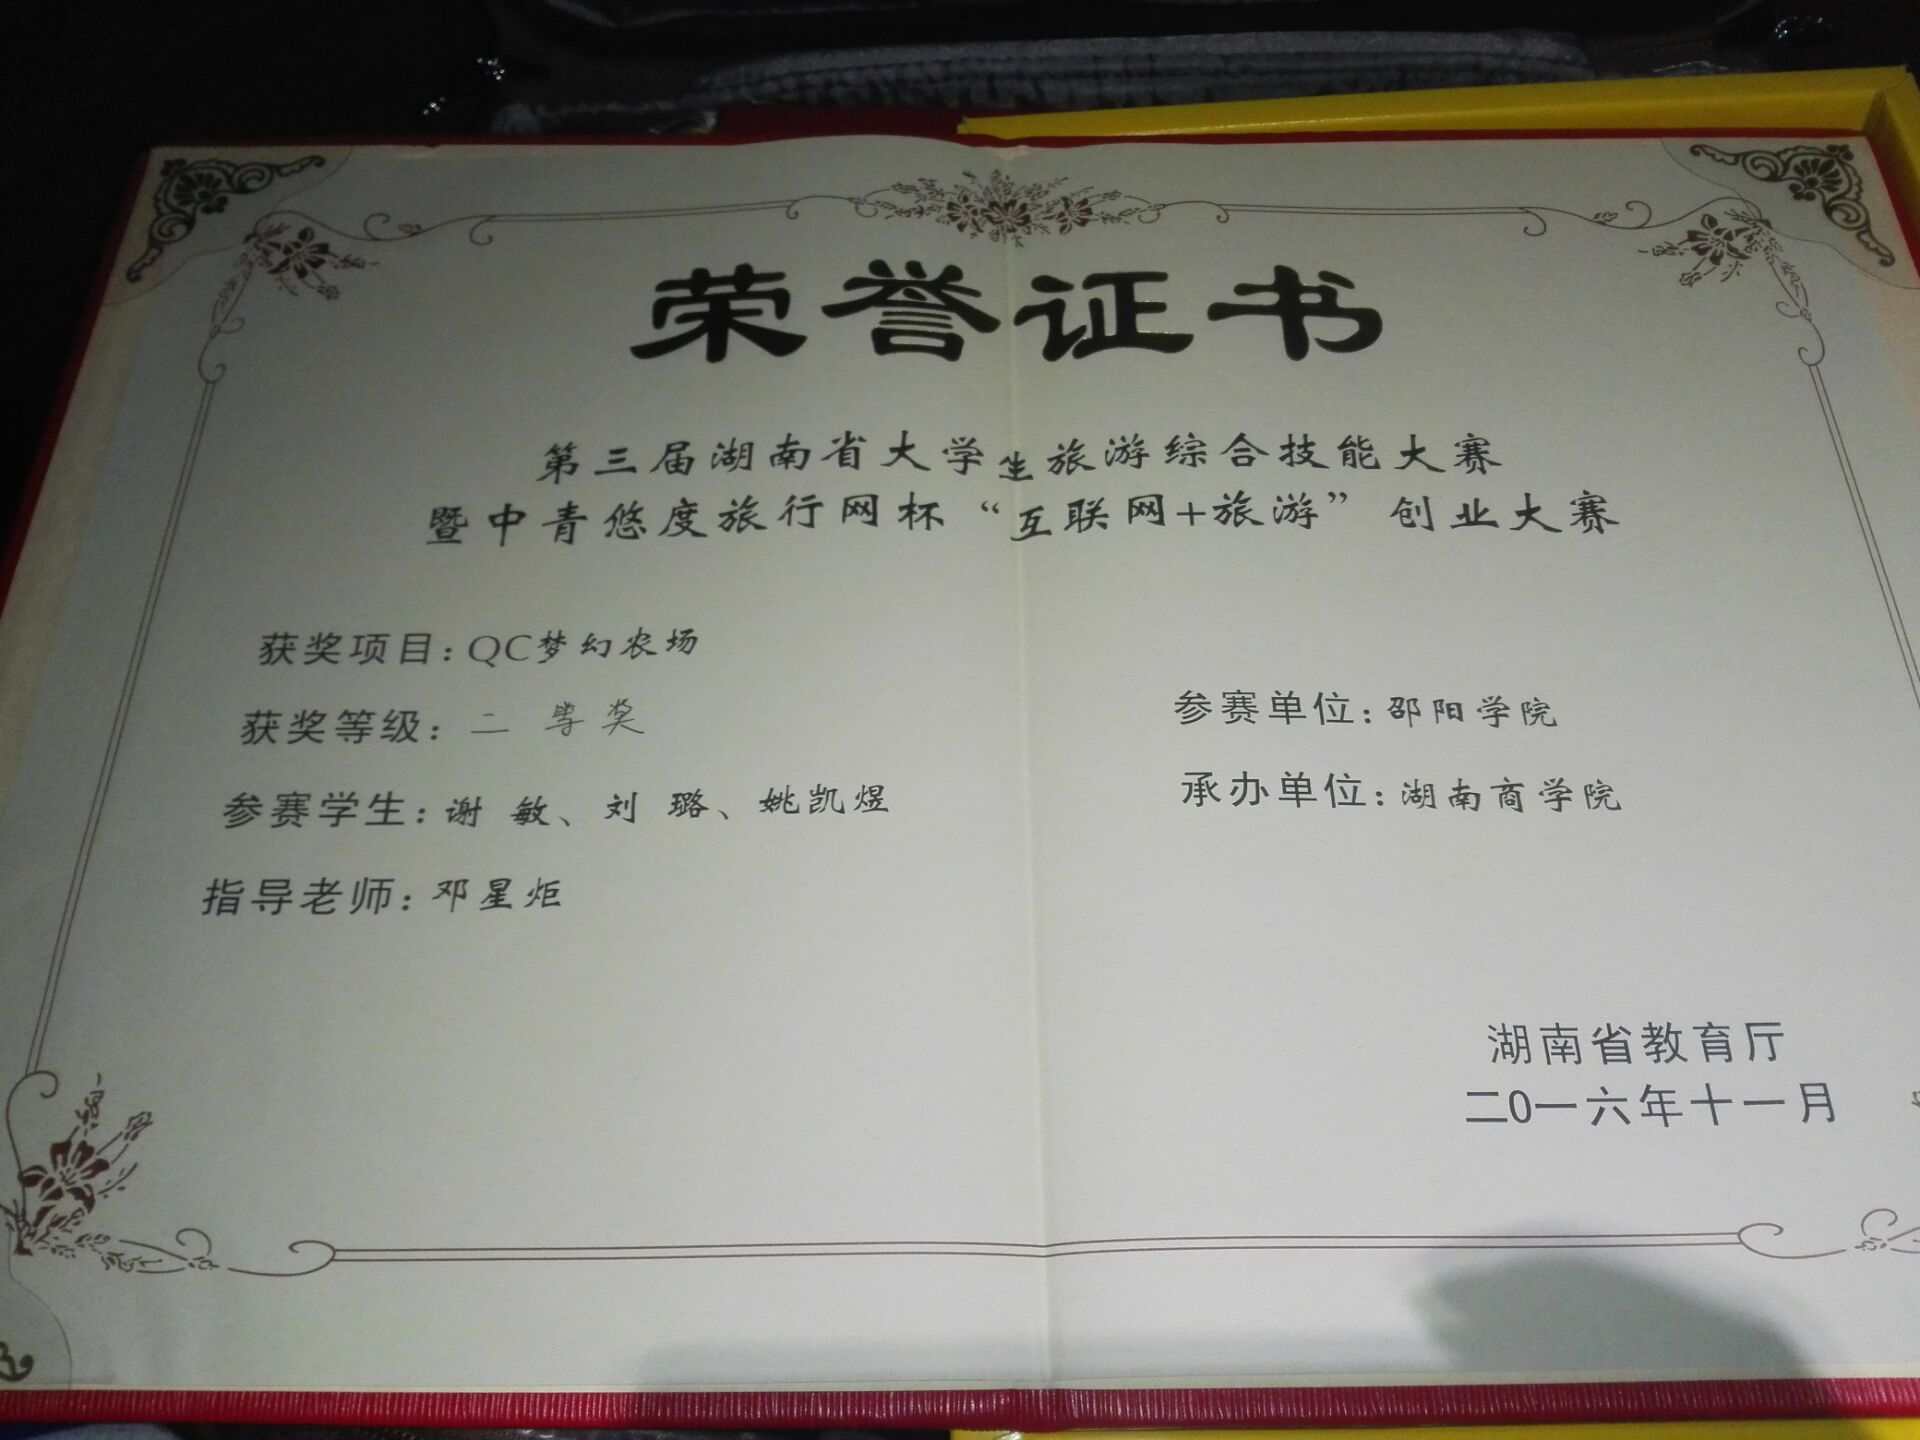 荣誉证书
第三届湖南省大学生旅游综合技能大赛
暨中青悠度旅行网杯“互联网+旅游”创业大赛
获奖项目：QC梦幻农场
获奖等级：二等奖
参赛学生：谢 敏、刘 璐、姚凯煜
指导老师：邓星炬
参赛单位：邵阳学院
承办单位：湖南商学院
湖南省教育厅
二0一六年十一月